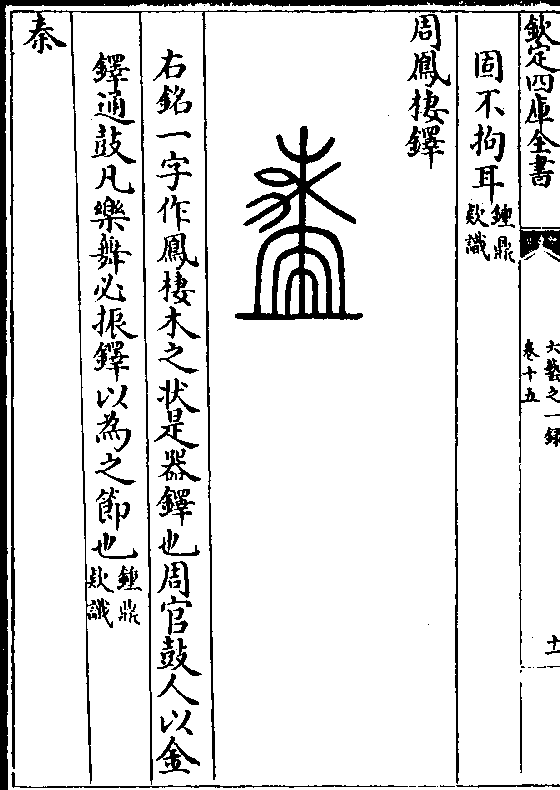 欽定四庫全書
六藝之一録
卷十五
十一
固不拘耳鐘鼎款識
周鳳棲鐸
右銘一字作鳳棲木之状是器鐸也周官鼓人以金
鐸通鼓凡樂舞必振鐸以為之節也鐘鼎款識
秦